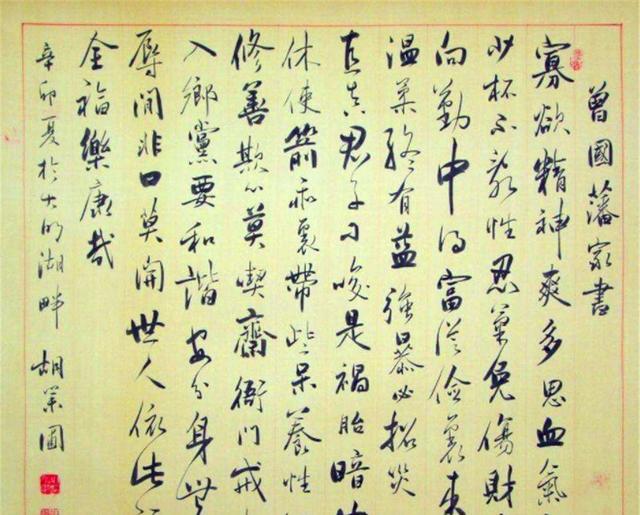 曾國藩家書
寡欲精神爽多思血氣
少杯不亂性忍氣免傷財
向勤中得富從儉裏來
溫柔終有益強暴必招災
直真君子刁唆是禍胎暗
休使箭乖裏帶些呆養性
修善欺心莫喫齋衙門戒
入鄉黨要和諧安分身無
辱閒非口莫開世人依此
全福樂康哉
辛卯夏於大明湖畔 胡